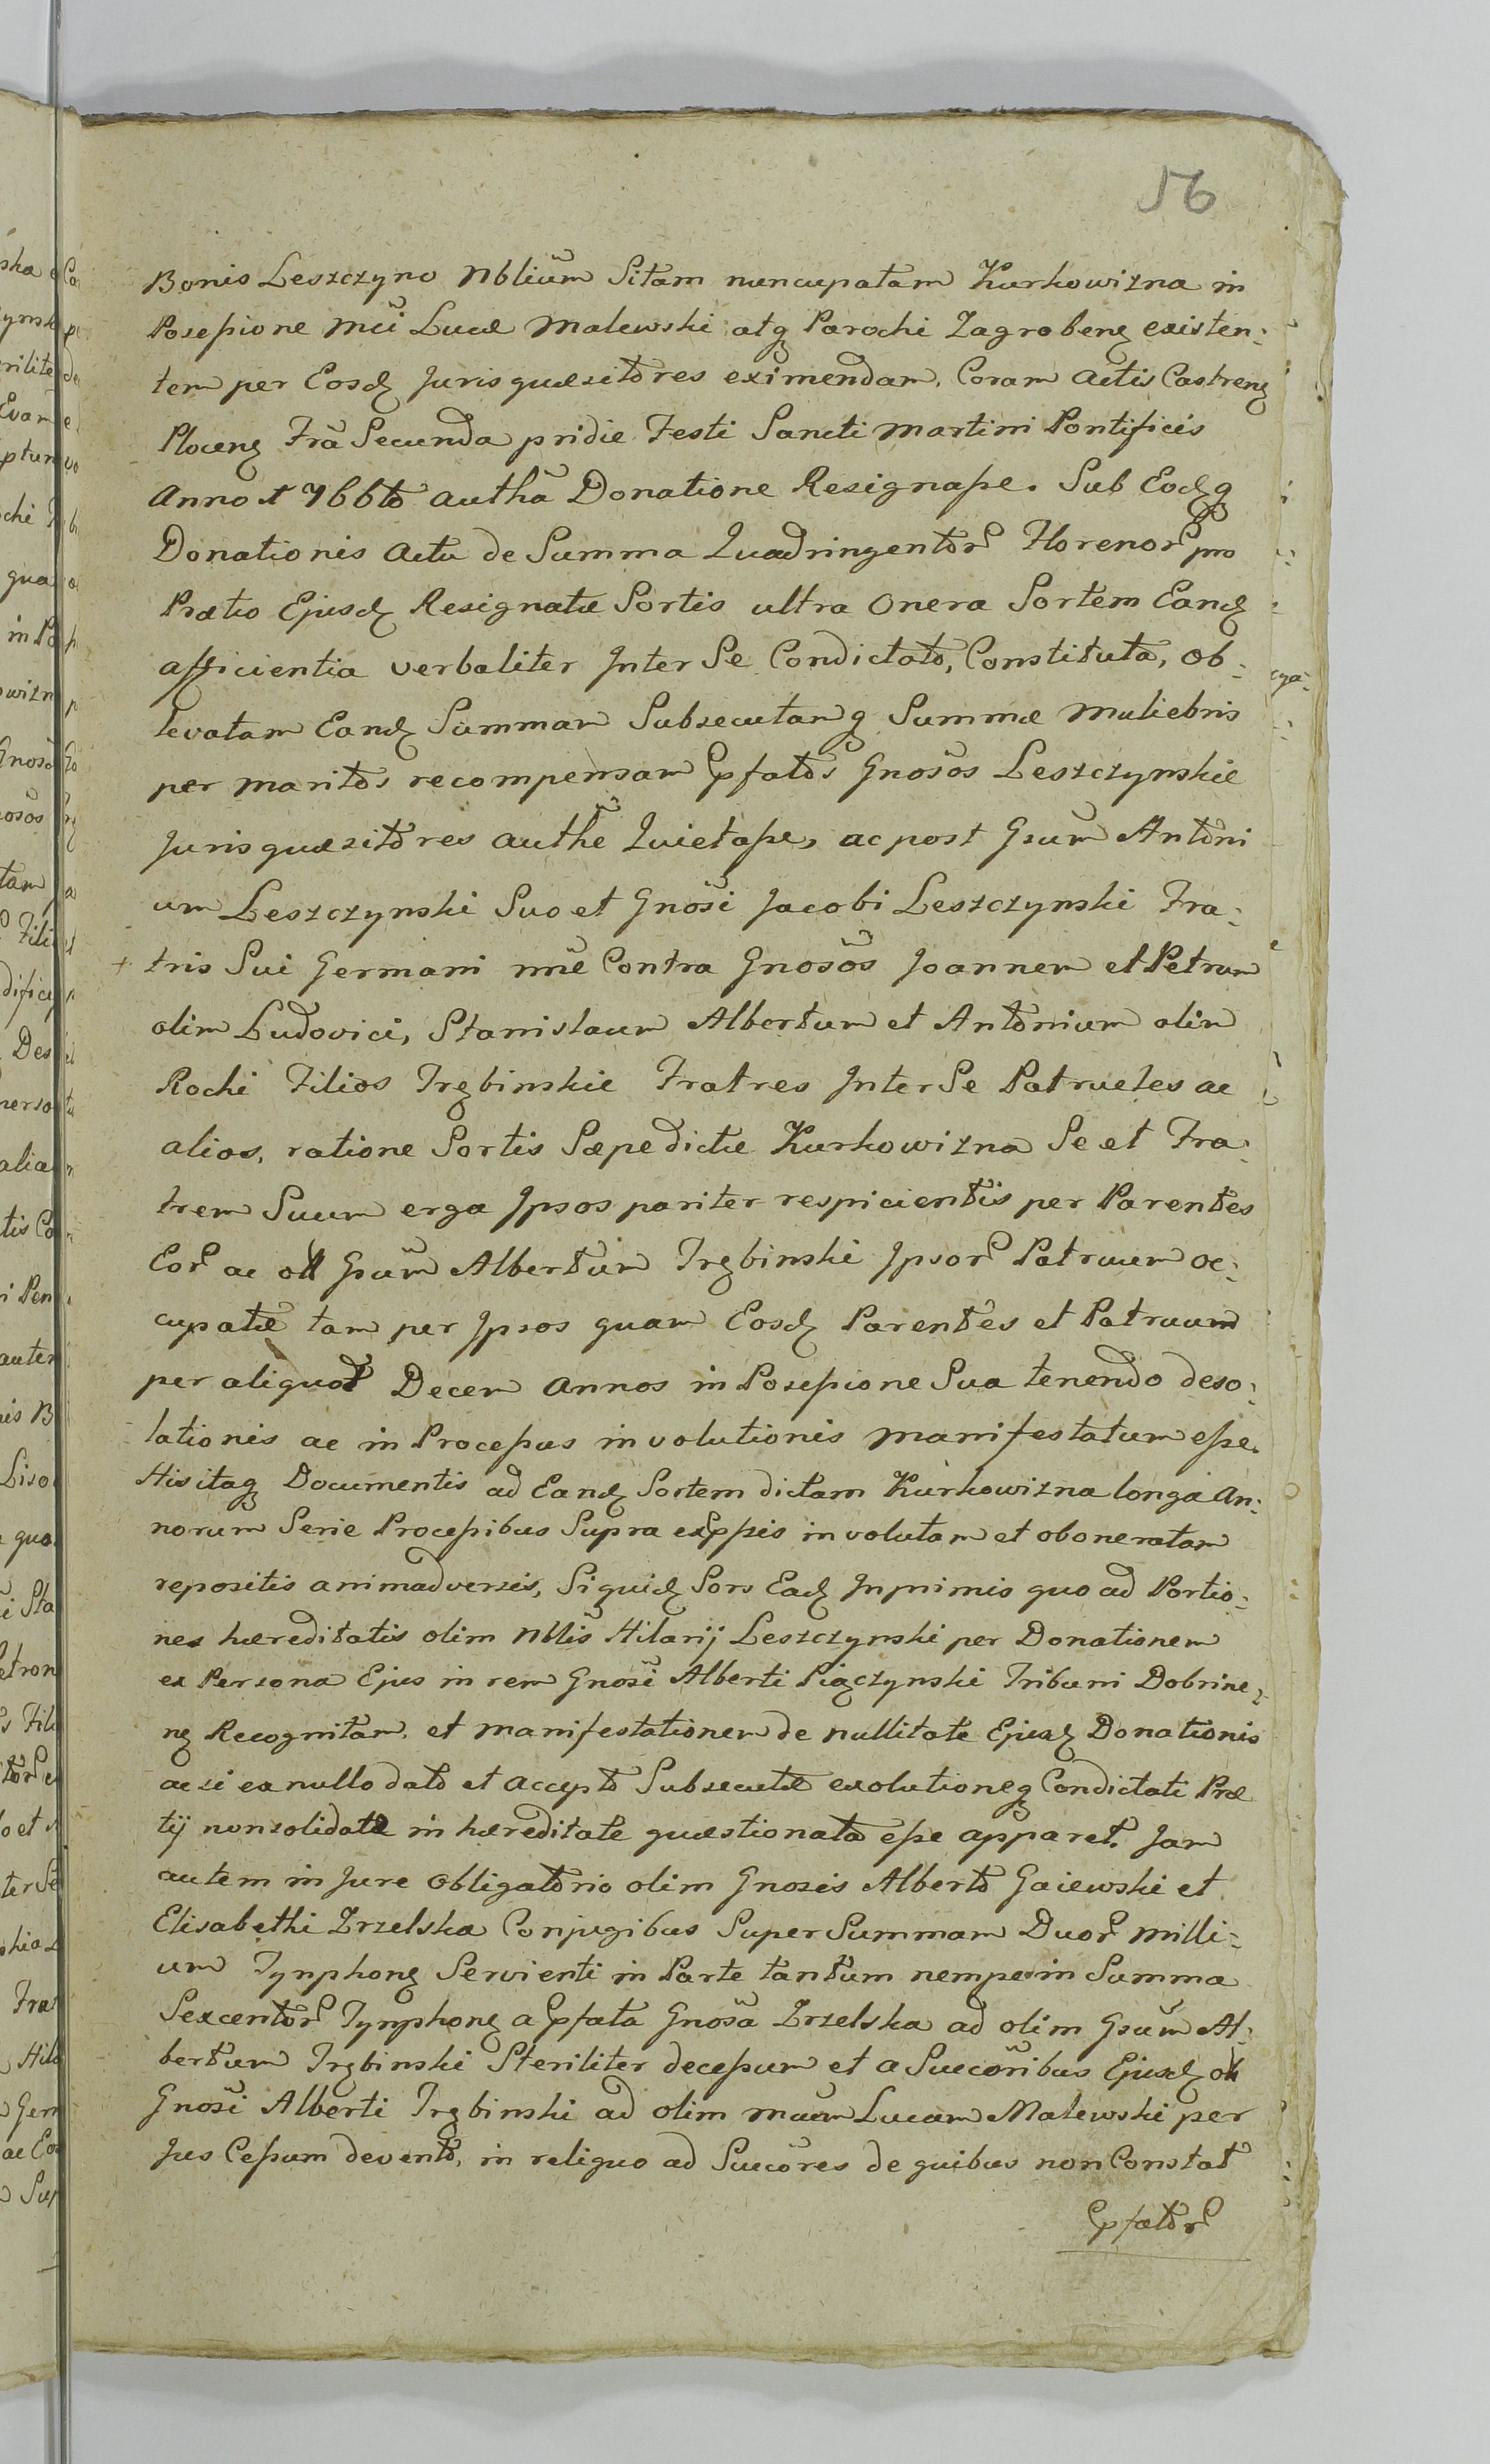 56
Bonis Leszczyno Nblium Sitam nuncupatam Kurkowizna in
Posessione Mci Lucæ Malewski atq Parochi Zagrobenq existen:
tem per Eosd Jurisquæsitores eximendam. Coram Actis Castrenq
Plocenq Fra Secunda pridie Festi Sancti Martini Pontificis
Anno 1766to autha Donatione Resignasse. Sub Eodq
Donationis Actu de Summa Quadringentor Florenor pro
Prætio Ejusd Resignatæ Sortis ultra Onera Sortem Eand
afficientia verbaliter Inter Se Condictato, Constituta, ob:
levatam Eand Summam Subsecutamq Summæ Muliebris
per Maritos recompensam Pfatos Gnosos Leszczynskie
Jurisquæsitores authe Quietasse, ac post Gsum Antoni
um Leszczynski Suo et Gnosi Jacobi Leszczynski Fra:
+ tris Sui Germani nne Contra Gnosos Joannem et Petrum
olim Ludovici, Stanislaum Albertum et Antonium olim
Rochi Filios Trzbinskie Fratres Inter Se Patrueles ac
alios, ratione Sortis Sæpedictæ Kurkowizna Se et Fra:
trem Suum erga Ipsos pariter respicientis per Parentes
Eor ac oll Gsum Albertum Trzbinski Ipsor Patruum oc:
cupatæ tam per Ipsos quam Eosd Parentes et Patruum
per aliquot Decem Annos in Posessione Sua tenendo deso:
lationis ac in Processus involutionis Manifestatum esse.
His itaq Documentis ad Eand Sortem dictam Kurkowizna longa An:
norum Serie Processibus Supra exPssis involutam et oboneratam
repositis animadversis, Siquid Sors Ead Inprimis quo ad Portio:
nes hæreditatis olim Nblis Hilarij Leszczynski per Donationem
ex Persona Ejus in rem Gnosi Alberti Piączynski Tribuni Dobrine:
nq Recognitam. et Manifestationem de nullitate Ejusd Donationis
ac si ex nullo dato et accepto Subsecutæ exolutioneq Condictati Præ
tij nonsolidatæ in hæreditate quæstionata esse apparet. Jam
autem in Jure Obligatorio olim Gnosis Alberto Gaiewski et
Elisabethi Zrzelska Conjugibus Super Summam Duor Milli:
um Tynphonq Servienti in Parte tantum nempe in Summa
Sexcentor Tynphonq a Pfata Gnosa Zrzelska ad olim Gsum Al:
bertum Trzbinski Steriliter decessum et a Succoribus Ejusd oli
Gnosi Alberti Trzbinski ad olim Mcum Lucam Malewski per
Jus Cessum devento, in reliquo ad Succores de quibus non Constat
Pfator